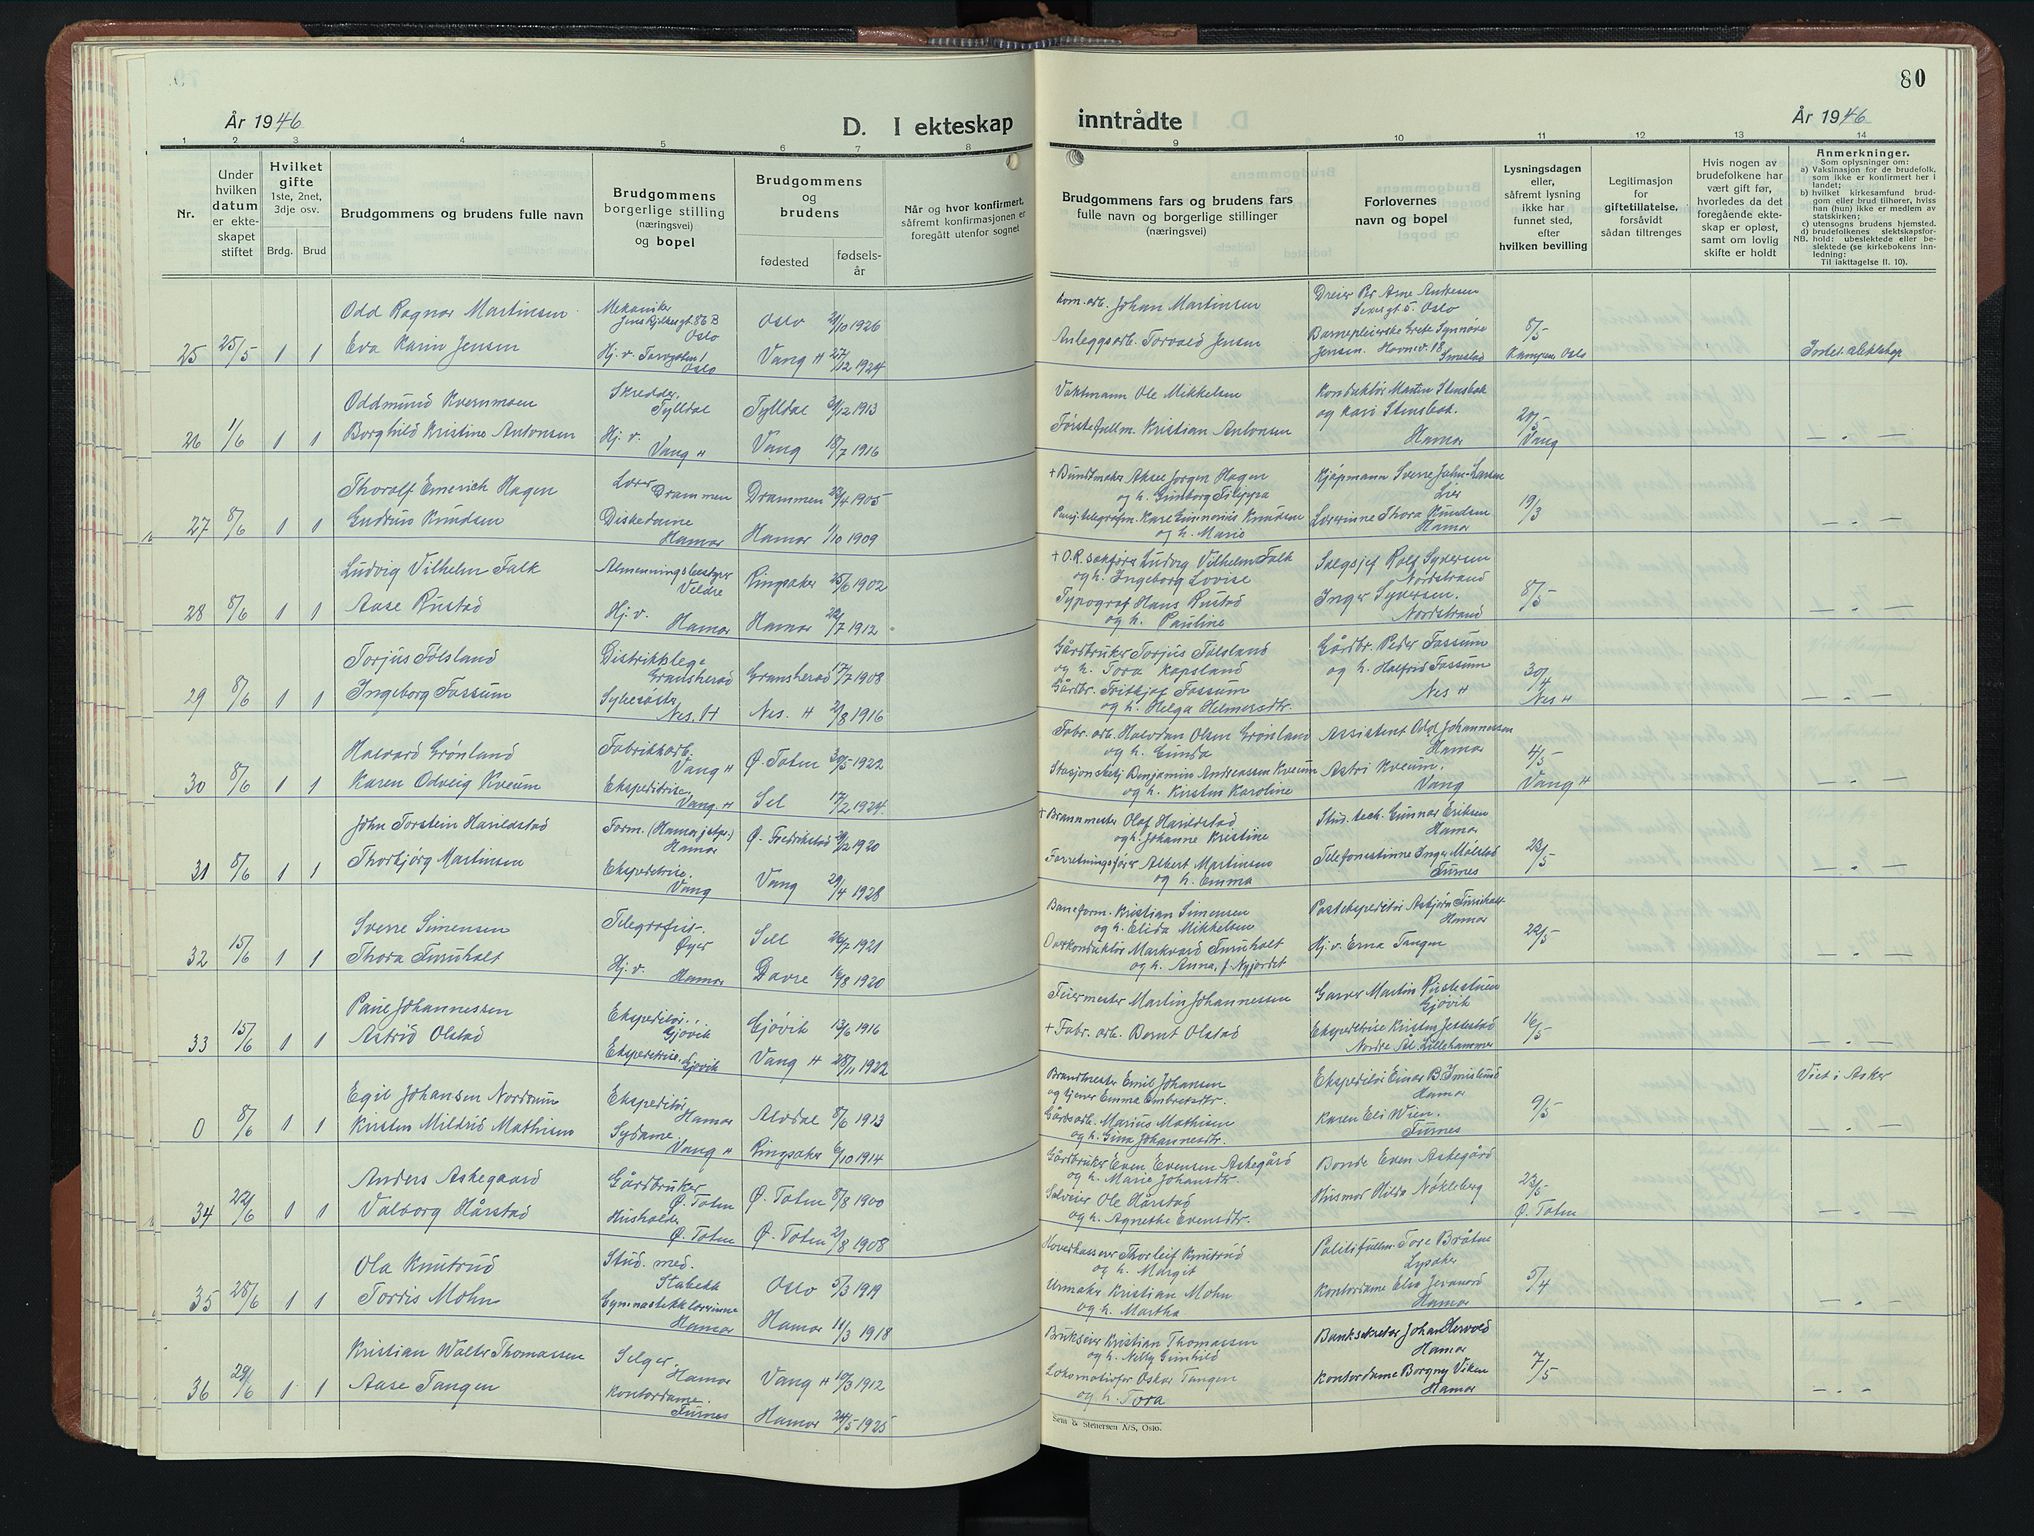 80
År 1946
D. I ekteskap inntrådte
År 1946
1 2 3 4 5 6 7 8 9 10 11 12 13 14
Nr.
Under hvilken datum er ekteskapet stiftet
Hvilket gifte 1ste, 2net, 3dje osv.
Brdg. Brud
Brudgommens og brudens fulle navn
Brudgommens borgerlige stilling (næringsvei) og bopel
Brudgommens og brudens
fødested
fødselsår
Når og hvor konfirmert, såfremt konfirmasjonen er foregått utenfor sognet
Brudgommens fars og brudens fars fulle navn og borgerlige stillinger (næringsvei)
Forlovernes navn og bopel
Lysningsdagen eller, såfremt lysning ikke har funnet sted, efter hvilken bevilling
Legitimasjon for giftetillatelse, forsåvidt sådan tiltrenges
Hvis nogen av brudefolkene har vært gift før, hvorledes da det foregående ekteskap er opløst, samt om lovlig skifte er holdt
Anmerkninger.
Som oplysninger om:
a) Vaksinasjon for de brudefolk, som ikke er konfirmert her i landet;
b) hvilket kirkesamfund brudgom eller brud tilhører, hviss han (hun) ikke er medlem av statskirken;
c) utensogns brudens hjemsted.
d) brudefolkenes slektskapsforhold: ubeslektede eller beslektede (se kirkebokens innledning:
NB.
Til iakttagelse II. 10).
Odd Ragnar Martinsen Mekaniker Jens Bjelkesgt 86 B Oslo Oslo 1926 Johan Martinsen Dreier Per Arne Andersen Oslo
25 25/5 1 1 Eva Karin Jensen Hj. v. Oslo Vang H 27/12 1924 Anleggsarb. Torvald Jensen Barnepleierske Grete Synnøve Jensen. Havnev. 18 Smestad 8/5 Kampen Oslo
Oddmund Kvernmoen Skredder, Tylldal Tylldal 1913 Vaktmann Ole Mikkelsen Konduktør Martin Stensbak og Kari Stensbak.
26 1/6 1 1 Borghild Kristine Antonsen Hj. v. Vang H Vang 18/7 1916 Førstefullm. Kristian Antonsen Hamar 20/5 Vang — „ —
Thoralf Emerich Hagen Lærer Drammen Drammen 1905 + Bundtmaker Aksel Jørgen Hagen og h. Gunborg Filippa Kjøpmann Sverre Jahn-Larsen Lier
27 8/6 1 1 Gudrun Knudsen Diskedame Hamar Hamar 1/10 1909 Karl Gunnerius Knudsen og h. Marie Lærerinne Thora Knudsen Hamar 19/3 — „ —
Ludvig Vilhelm Falk Almenningsbestyrer Veldre Ringsaker 25/6 1902 + O.R. sakfører Ludvig Vilhelm Falk og h. Ingeborg Lovise Salgsjef Rolf Syversen Nordstrand
28 8/6 1 1 Aase Rustad Hj. v. Hamar Hamar 22/7 1912 Typograf Hans Rustad og h. Pauline Inger Syversen. Nordstrand 8/5 — „ —
Torjus Følsland Distriktslege Gransherad Gransherad 17/7 1908 Gårdbruker Torjus Følsland og h. Tora Kapsland Gårdbr. Peder Fossum og h. Halfrid Fossum
29 8/6 1 1 Ingeborg Fossum Nes. H Nes. H 21/8 1916 Gårdbr. Fritkjof Fossum og h. Helga Helmersdtr. Nes H 30/4 Nes H — „ —
Halvard Grønland Fabrikkarb. Vang H Ø. Toten 30/5 1922 Fabr. arb. Halvdan Olsen Grønland og h. Gunda Assistent Odd Johannessen Hamar
30 8/6 1 1 Karen Odveig Kveum Ekspeditrise. Vang. H Sel 17/2 1924. Benjamin Andreassen Kveum og h. Kirsten Karoline Astri Kveum. Vang 4/5 Vang H
John Torstein Harildstad Form. (Hamar jstpr.) Hamar Ø. Fredrikstad 1920 + Brannmester Olaf Harildstad og h. Johanne Kristine Stud. tech. Gunnar Eriksen Hamar
31 8/6 1 1 Thorbjørg Martinsen Ekspeditrise. Vang Vang 29/4 1928 Forretningsfører Albert Martinsen og h. Emma Telefonistinne Inger Mælstad Furnes 23/5 — „ —
Sverre Simensen Telegrafist. Øyer Sell 26/7 1921 Baneform. Kristian Simensen og h. Elida Mikkelsen Postekspeditør Asbjørn Furuholt Hamar
32 15/6 1 1 Thora Furuholt Hj. v. Hamar Dovre 16/8 1920 Overkonduktør Markvard Furuholt og h. Anna, f. Nyjordet Hj. v. Erna Tangen 22/5 — „ —
Paul Johannessen Ekspeditør. Gjøvik Gjøvik 13/6 1916 Fuermester Martin Johannessen Garver Martin Rustestuen Gjøvik
33 15/6 1 1 Astrid Olstad Ekspeditrise. Gjøvik Vang H 28/11 1922 + Fabr. arb. Bernt Olstad Ekspeditrise Kirsten Jettestad Nordre Ål. Lillehammer 16/5 — „ —
Egil Johansen Nordrum Ekspeditør Hamar Alvdal 8/6 1913 Brandmester Emil Johansen og tjener Emma Embretsdtr. Ekspeditør Einar B. Imislund Hamar Viet i Asker
0 8/6 1 1 Kirsten Mildrid Mathisen Sydame Vang H Ringsaker 6/10 1914 Gårdsarb. Marius Mathisen og h. Gina Johannesdtr. Karen Eli Wien. Furnes 9/5 — „ —
Anders Askegaard Gårdbruker Ø. Toten Ø. Toten 8/8 1900 Gårdbruker Even Evensen Askegård og h. Marie Johansdtr. Bonde Even Askegård
34 22/6 1 1 Valborg Hårstad Husholder Ø. Toten Ø. Toten 21/8 1908 Selveier Ole Hårstad og h. Agnethe Evensdtr. Husmor Hilda Nøkleberg 23/5 Ø. Toten — „ —
Ola Knutrud Stud. med. Stabekk Oslo 5/3 1919 Thorleif Knutrud og h. Margit Politifullm. Tore Bråten Lysaker
35 28/6 1 1 Torris Mohn Gymnastikklærerinne Hamar Hamar 11/3 1918 Urmaker Kristian Mohn og h. Martha Kontordame Elsa Jevanord Hamar 5/4 — „ —
Kristian Walter Thomassen Selger. Hamar Vang H 1912 Brukseier Kristian Thomassen og h. Nelly Gunhild Banksekretær Johan Hervold Hamar
36 29/6 1 1 Aase Tangen Kontordame. Furnes Hamar 24/5 1925 Lokomotivfør Oskar Tangen og h. Tora Kontordame Borgny Viken Hamar 7/5 — „ —
Sem & Stenersen A/S, Oslo.